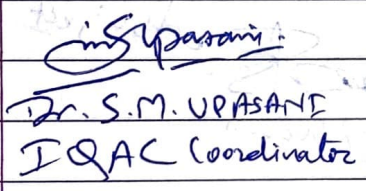 Upasani.
Dr. S.M. UPASANI
IQAC Coordinator